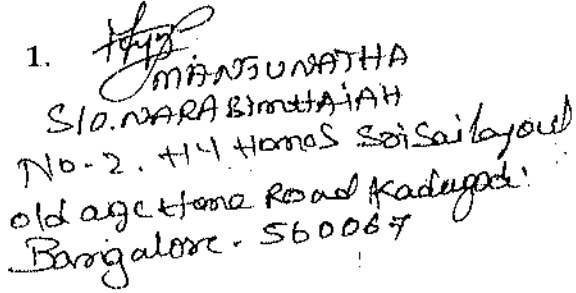 1.
MANJUNATHA
S/O. NARABIMHAIAH
No-2. H4 Homes Sai Sai layout
old age Home Road Kadugodi.
Bangalore. 560067